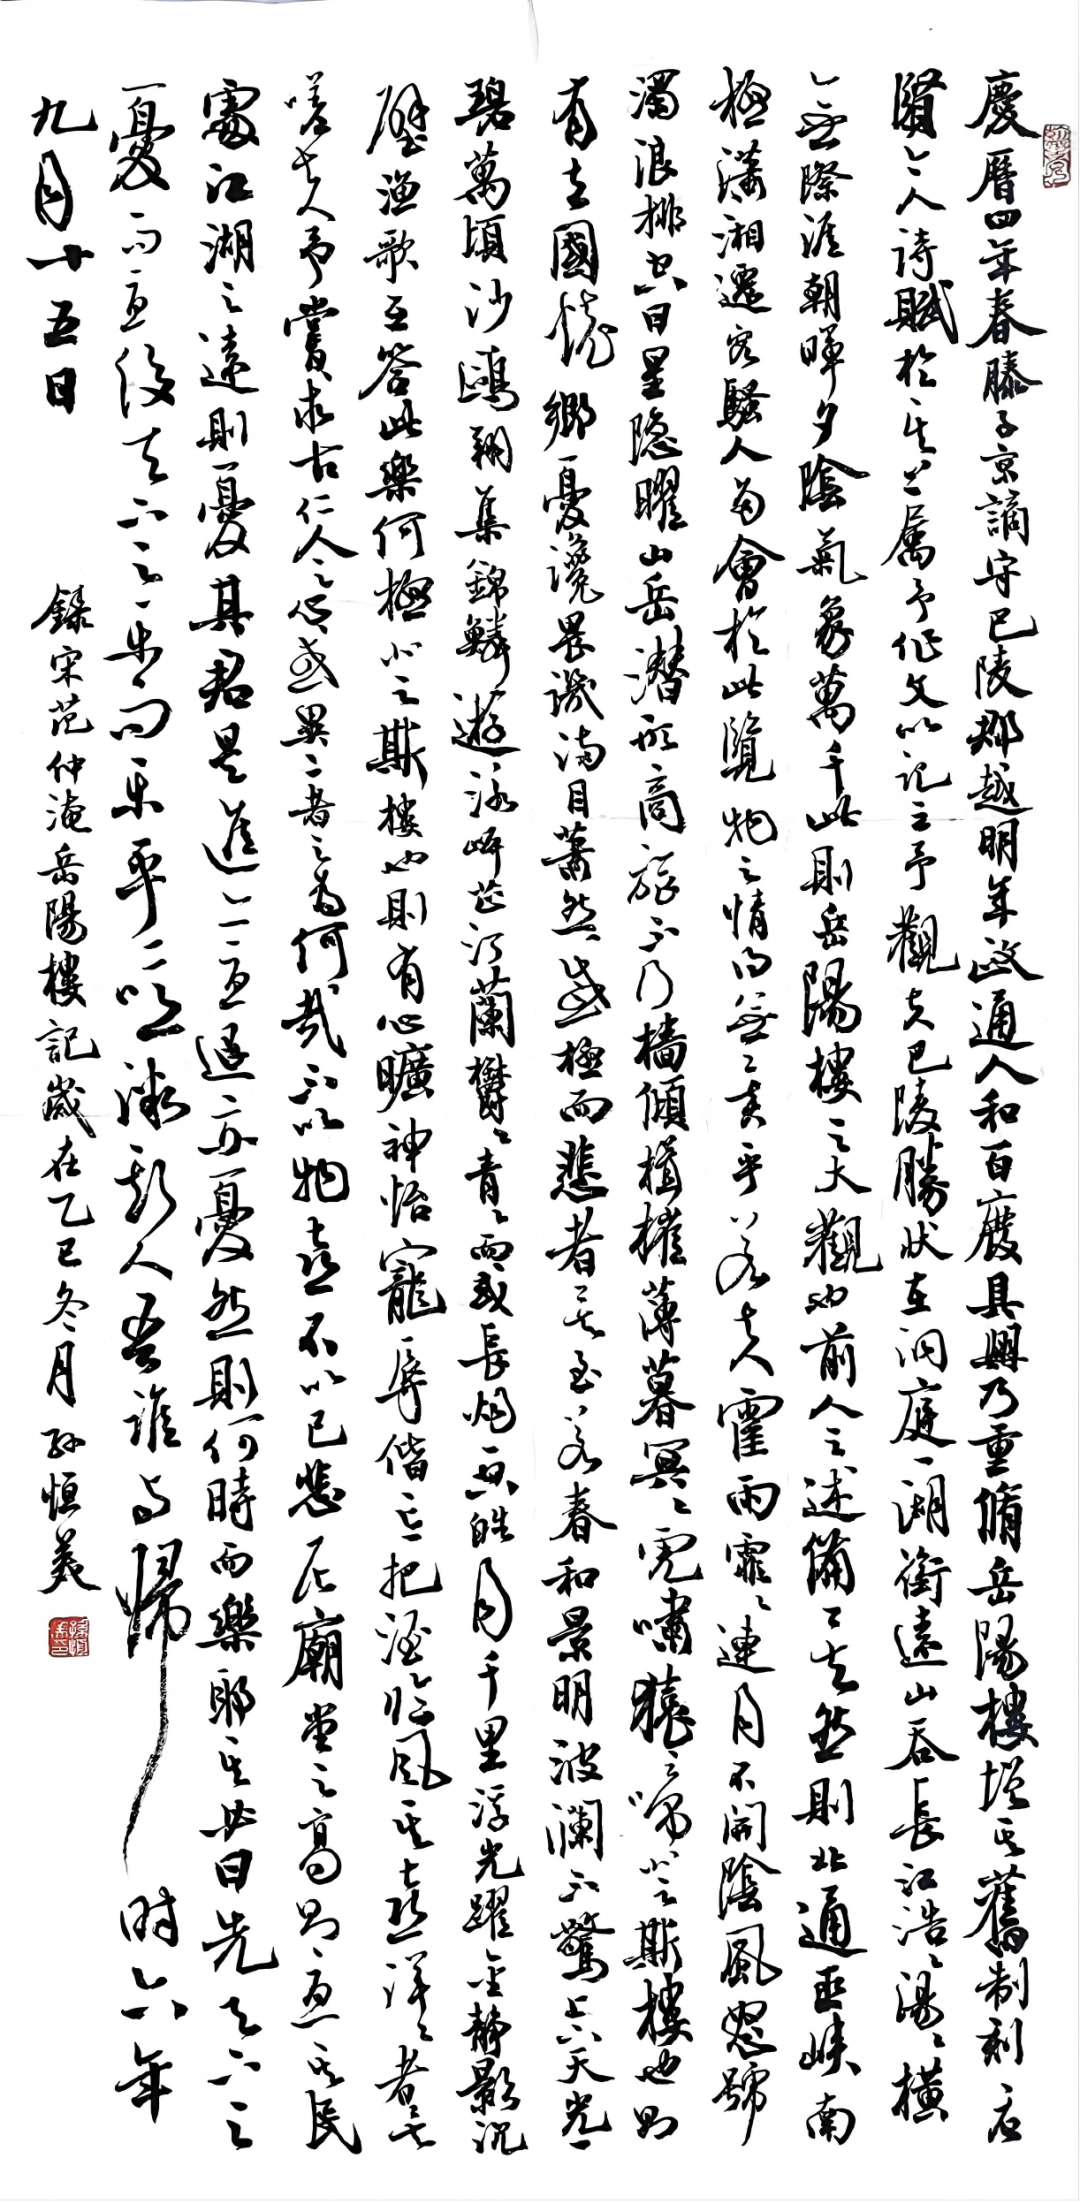 慶曆四年春滕子京謫守巴陵郡越明年政通人和百廢具興乃重脩岳陽樓增其舊制刻唐
賢今人詩賦於其上屬予作文以記之予觀夫巴陵勝狀在洞庭一湖銜遠山吞長江浩浩湯湯橫
無際涯朝暉夕陰氣象萬千此則岳陽樓之大觀也前人之述備矣然則北通巫峽南
極瀟湘遷客騷人多會於此覽物之情得無異乎若夫霪雨霏霏連月不開陰風怒號
濁浪排空日星隱曜山岳潛形商旅不行檣傾楫摧薄暮冥冥虎嘯猿啼登斯樓也則
有去國懷鄉憂讒畏譏滿目蕭然感極而悲者矣至若春和景明波瀾不驚上下天光一
碧萬頃沙鷗翔集錦鱗游泳岸芷汀蘭鬱鬱青青而或長煙一空皓月千里浮光躍金靜影沉
璧漁歌互答此樂何極登斯樓也則有心曠神怡寵辱偕忘把酒臨風其喜洋洋者矣
嗟夫予嘗求古仁人之心或異二者之為何哉不以物喜不以己悲居廟堂之高則憂其民
處江湖之遠則憂其君是進亦憂退亦憂然則何時而樂耶其必曰先天下之
憂而憂後天下之樂而樂乎噫微斯人吾誰與歸 時六年
九月十五日
錄宋范仲淹岳陽樓記歲在乙巳冬月孫恒義